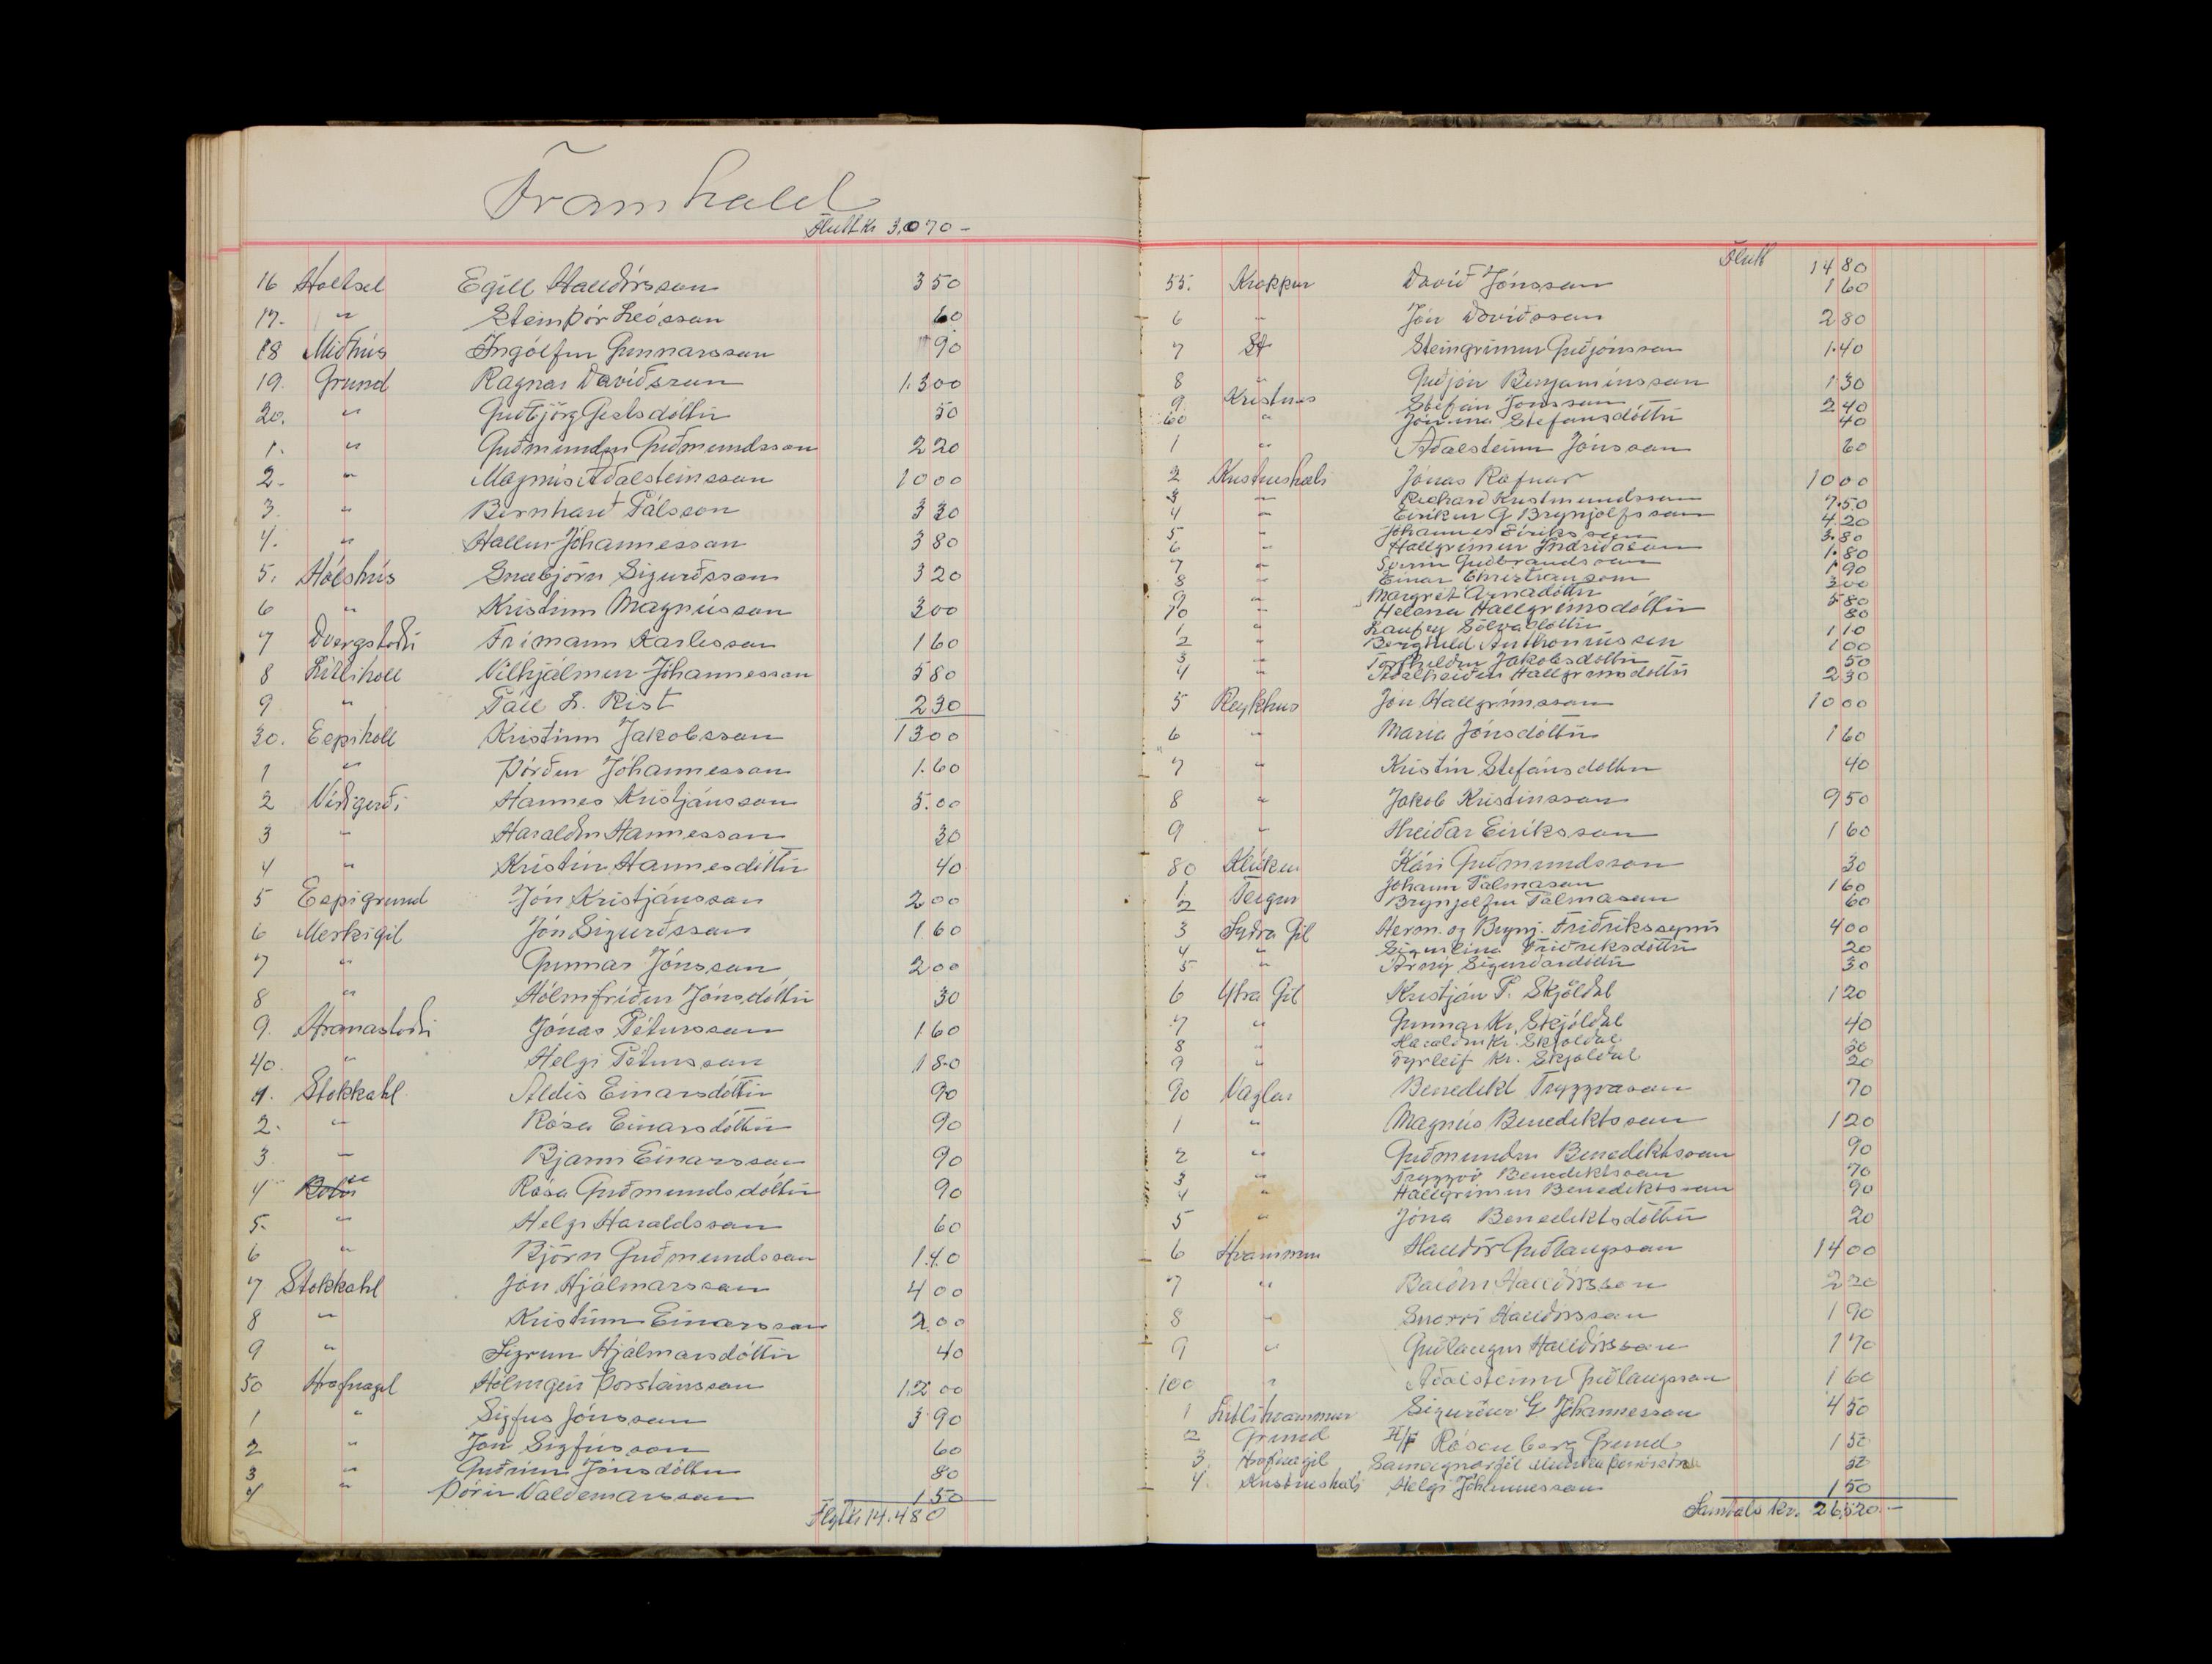 Framhald
Flutt kr 3,070-
16 Holtsel Egill Halldórsson 350
17. " Steinþór Leósson 60
18 Miðhús Ingólfur Gunnarsson 90
19. Grund Ragnar Davíðsson 1.300
20. " Guðbjörg Gestsdóttir 50
1. " Guðmundur Guðmundsson 220
2. " Magnús Aðalsteinsson 1000
3. " Bernharð Pálsson 330
4. " Hallur Jóhannesson 380
5. Hólshús Snæbjörn Sigurðsson 320
6 " Kristinn Magnússon 300
7 Dvergstöðu Frímann Karlesson 160
8 Litlihóll Vilhjálmur Jóhannesson 580
9 " Páll L. Rist 230
30. Espihóll Kristinn Jakobsson 1300
1 " Þórður Jóhannesson 1.60
2 Víðigerði Hannes Kristjánsson 5.00
3 " Haraldur Hannesson 30
4 " Kristín Hannesdóttir 40
5 Espigrund Jón Kristjánsson 200
6 Merkigil Jón Sigurðsson 160
7 " Gunnar Jónsson 200
8 " Hólmfríður Jónsdóttir 30
9. Hranastöðu Jónas Pétursson 160
40. " Helgi Pétursson 180
1. Stokkahl. Aldís Einarsdóttir 90
2. " Rósa Einarsdóttir 90
3 " Bjarni Einarsson 90
4 " Rósa Guðmundsdóttir 90
5. " Helgi Haraldsson 60
6 " Björn Guðmundsson 140
7 Stokkahl Jón Hjálmarsson 400
8 " Kristinn Einarsson 200
9 " Sigrún Hjálmarsdóttir 40
50 Hrafnagil Hólmgeir Þorsteinsson 1200
1 " Sigfús Jónsson 390
2 " Jón Sigfússon 60
3 " Guðrún Jónsdóttir 80
4 " Þórir Valdemarsson 150
Flyt kr 14.480
Flutt 1480
55. Kroppur Davíð Jónsson 160
6 " Jón Davíðsson 280
7 Steingrímur Guðjónsson 1.40
8 " Guðjón Benjamínsson 130
9. Kristnes Stefán Jónsson 240
60 " Jónína Stefánsdóttir 40
1 " Aðalsteinn Jónsson 60
2 Kristneshæli Jónas Rafnar 1000
3 " Richard Kristmundsson 7.50
4 " Eiríkur G Brynjólfsson 420
5 " Jóhannes Eiríksson 3.80
6 " Hallgrímur Indriðason 1.80
7 " Guðbrandsson 190
8 " Einar Christiansson 300
9 " Margrét Árnadóttir 580
70 " Helena Hallgrímsdóttir 80
1 " Laufey Sölvadóttir 110
2 " Berghild Anthonissen 100
3 " Torfhildur Jakobsdóttir 50
4 " Aðalheiður Hallgrímsdóttir 230
5 Reykhús Jón Hallgrímsson 1000
6 " María Jónsdóttir 160
7 " Kristín Stefánsdóttir 40
8 " Jakob Kristinsson 950
9 " Hreiðar Eiríksson 160
80 Klúkur Kári Guðmundsson 30
1 Teigur Jóhann Pálmason 160
2 Brynjólfur Pálmason 60
3 Syðra Gil Herm. og Brynj. Friðrikssynir 400
4 " Sigurlína Friðriksdóttir 20
5 " Árný Sigurðardóttir 30
6 Ytra Gil Kristján P. Skjöldal 120
7 " Gunnar Kr. Skjóldal 40
8 " Haraldur Kr. Skjóldal 30
9 " Fyrleif Kr. Skjóldal 20
90 Vaglar Benedikt Tryggvason 70
1 " Magnús Benediktsson 120
2 " Guðmundur Benediktsson 90
3 " Tryggvi Benediktsson 70
4 " Hallgrímur Benediktsson 90
5 " Jóna Benediktsdóttir 20
6 Hvammur Halldór Guðlaugsson 1400
7 " Baldur Halldórsson 220
8 " Snorri Halldórsson 190
9 " Guðlaugur Halldórsson 170
100 " Aðalsteinn Guðlaugsson 160
1 Litlihvammur Sigurður G Jóhannesson 450
2 Grund H/F Rósenberg Grund 150
3. Hrafnagil
4. Kristneshæli Helgi Jóhannesson 150
Samtals kr. 26520.-